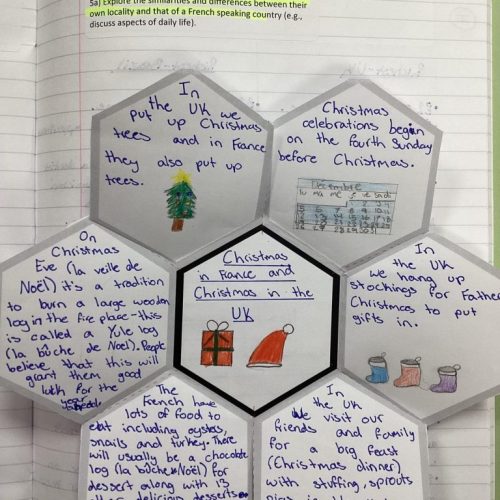 5a) Explore the similarities and differences between their
own locality and that of a French speaking country (e.g.,
discuss aspects of daily life).
In
the UK we
put up Christmas
trees and in France
they also put up
trees.
Christmas
celebrations begin
on the fourth Sunday
before Christmas.
Decembre
lu ma me je ve sa di
On
Christmas
Eve (la veille de
Noël) it's a tradition
to burn a large wooden
log in the fire place - this
is called a Yule log
(la bûche de Noël). People
believe that this will
grant them good
luck for the
Christmas
in France and
Christmas in the
UK
In
the UK
we hang up
stockings for Father
Christmas to put
gifts in.
The
French have
lots of food to
eat including oysters,
snails and turkey. There
will usually be a chocolate
log (la bûche de Noël) for
dessert along with 13
other delicious desserts
In
the UK
We visit our
friends and family
for a big feast
(Christmas dinner)
with stuffing, sprouts
pigs in